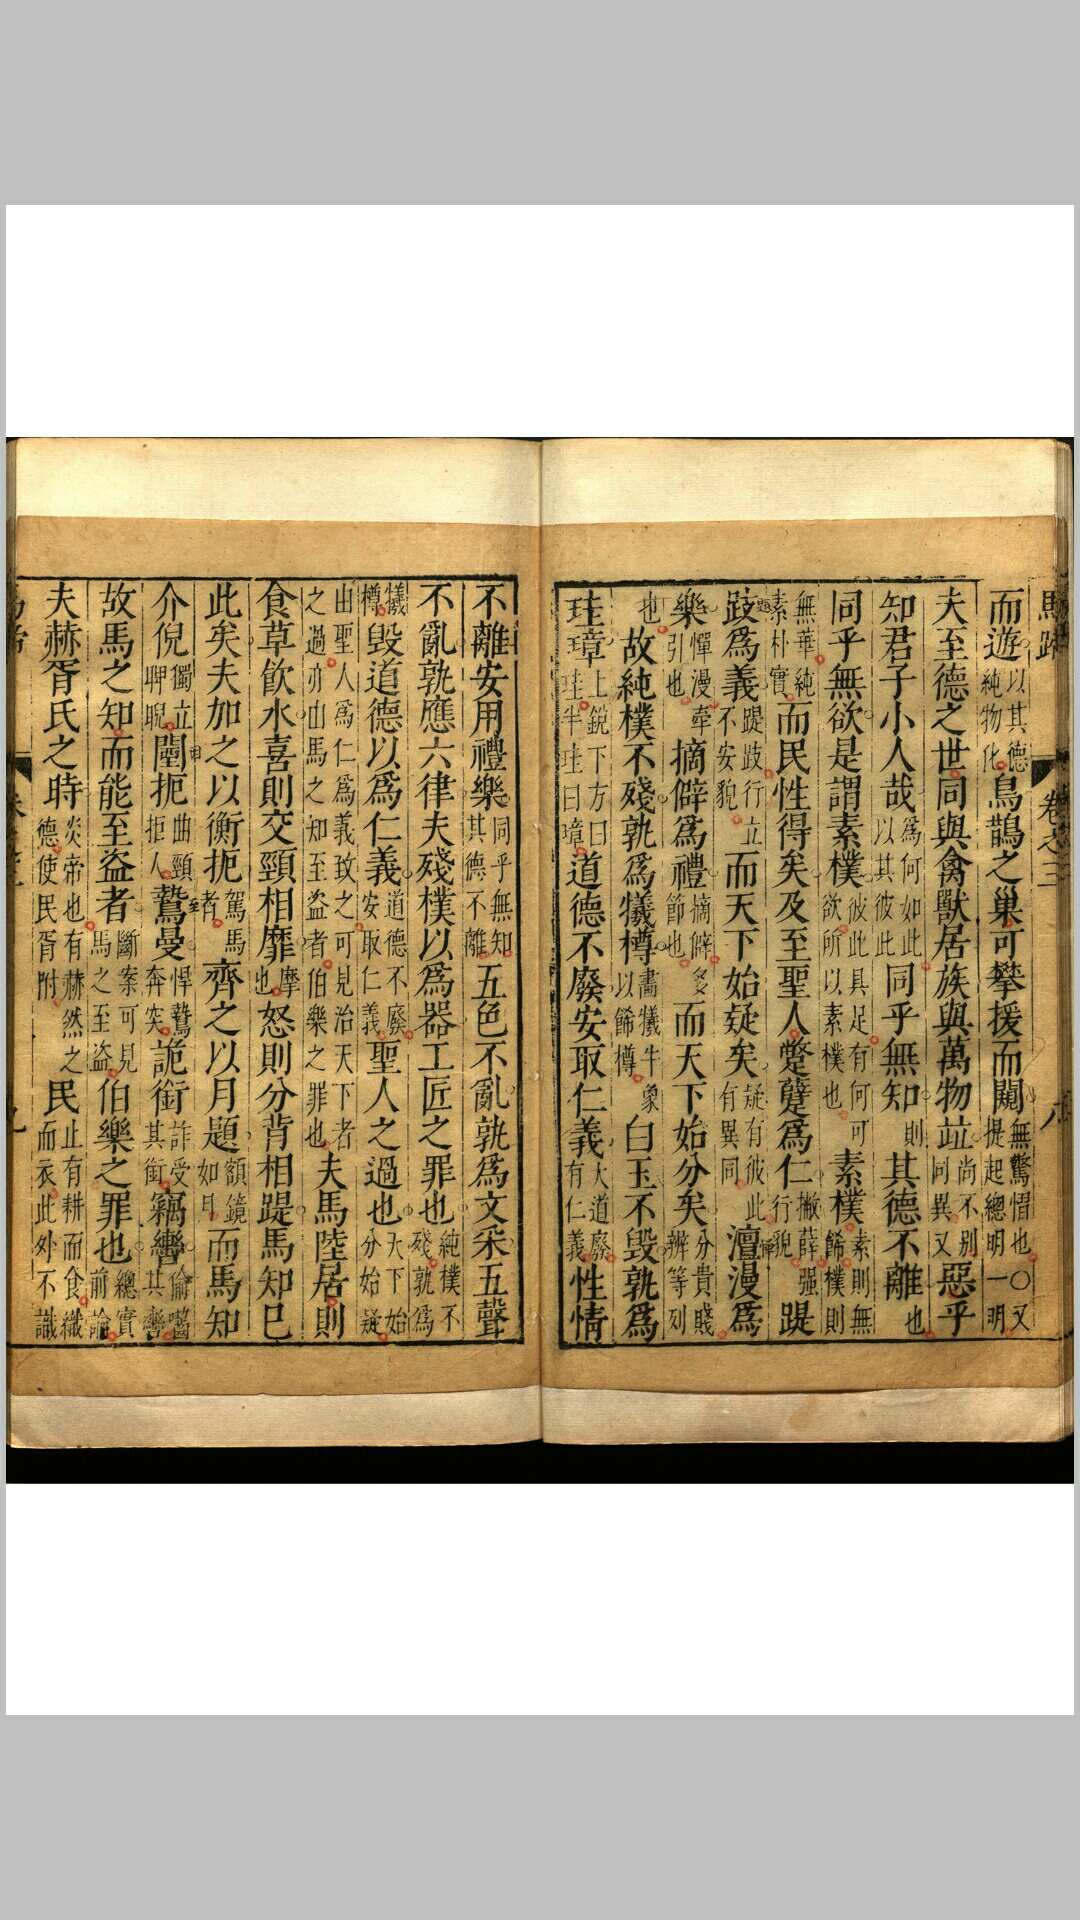 馬蹄 卷之三 八
而遊以其德純物化鳥鵲之巢可攀援而闚無驚惜也〇又提起總明一明
夫至德之世同與禽獸居族與萬物竝尚不別同異又惡乎
知君子小人哉爲何如此以其彼此同乎無知則其德不離也
同乎無欲是謂素樸彼此具足有何可欲所以素樸也素樸素則無餙樸則
無華純素朴實而民性得矣及至聖人蹩躠爲仁撇薛强行貌踶
跂爲義踶跂行立不安貌而天下始疑矣疑有彼此有異同澶漫爲
樂憚漫牽引也摘僻爲禮摘僻多節也而天下始分矣分貴賤辨等列
也故純樸不殘孰爲犧樽畵犧牛象以餙樽白玉不毀孰爲
珪璋上銳下方曰珪半珪曰璋道德不廢安取仁義大道廢有仁義性情
不離安用禮樂同乎無知其德不離五色不亂孰爲文采五聲
不亂孰應六律夫殘樸以爲器工匠之罪也純樸不殘孰爲
犧樽毀道德以爲仁義道德不廢安取仁義聖人之過也天下始分始疑
由聖人爲仁爲義致之可見治天下者之過亦由馬之知至盜者伯樂之罪也夫馬陸居則
食草飲水喜則交頸相靡摩也怒則分背相踶馬知已
此矣夫加之以衡扼駕馬者齊之以月題額鏡如月而馬知
介倪獨立睥睨闉扼曲頸拒人鷙曼悍鷙奔突詭銜詐受其銜竊轡偷嚙其轡
故馬之知而能至盜者斷案可見馬之至盜伯樂之罪也總實前論
夫赫胥氏之時炎帝也有赫然之德使民胥附民止有耕而食織而衣此外不識